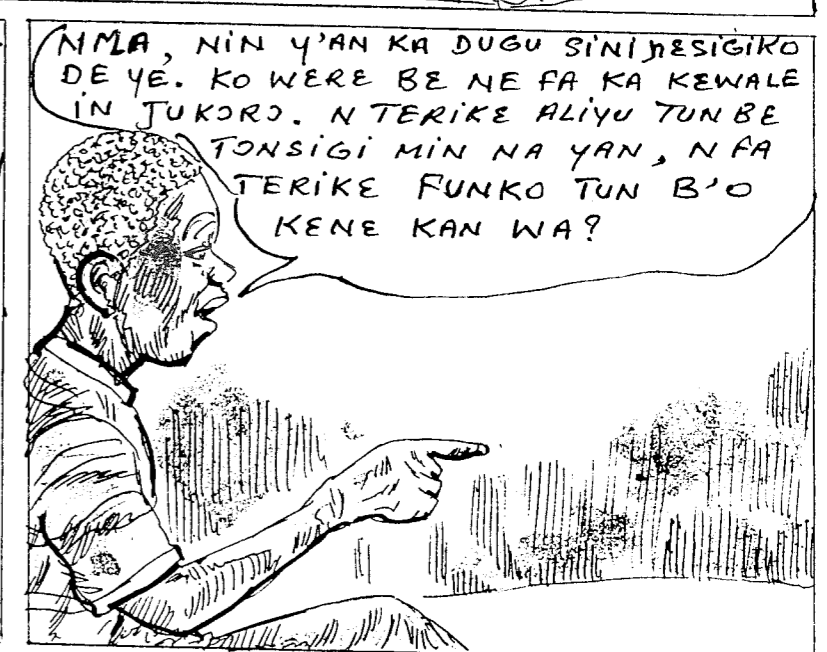 NMA, NIN Y'AN KA DUGU SINIɲƐSIGIKO
DE YE. KO WƐRƐ BƐ NE FA KA KƐWALE
IN JUKƆRƆ. N TERIKƐ ALIYU TUN BƐ
TONSIGI MIN NA YAN, N FA
TERIKƐ FUNKO TUN B'O
KƐNƐ KAN WA?